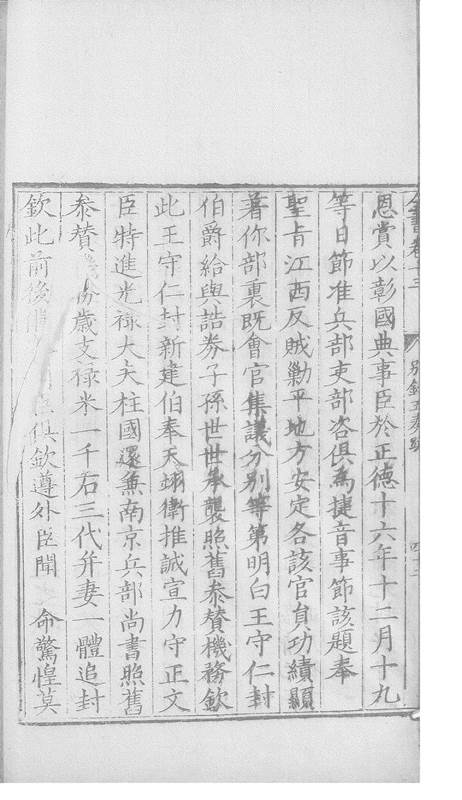 全書卷十三 別錄五奏疏 四十二
恩賞以彰國典事臣於正德十六年十二月十九
等日節准兵部吏部咨俱為捷音事節該題奉
聖旨江西反賊勦平地方安定各該官員功績顯
著你部裏既會官集議分別等第明白王守仁封
伯爵給與誥券子孫世世承襲照舊叅贊機務欽
此王守仁封新建伯奉天翊衛推誠宣力守正文
臣特進光祿大夫柱國還兼南京兵部尚書照舊
叅贊機務歲支祿米一千石三代幷妻一體追封
欽此前後俻 臣俱欽遵外臣聞 命驚惶莫